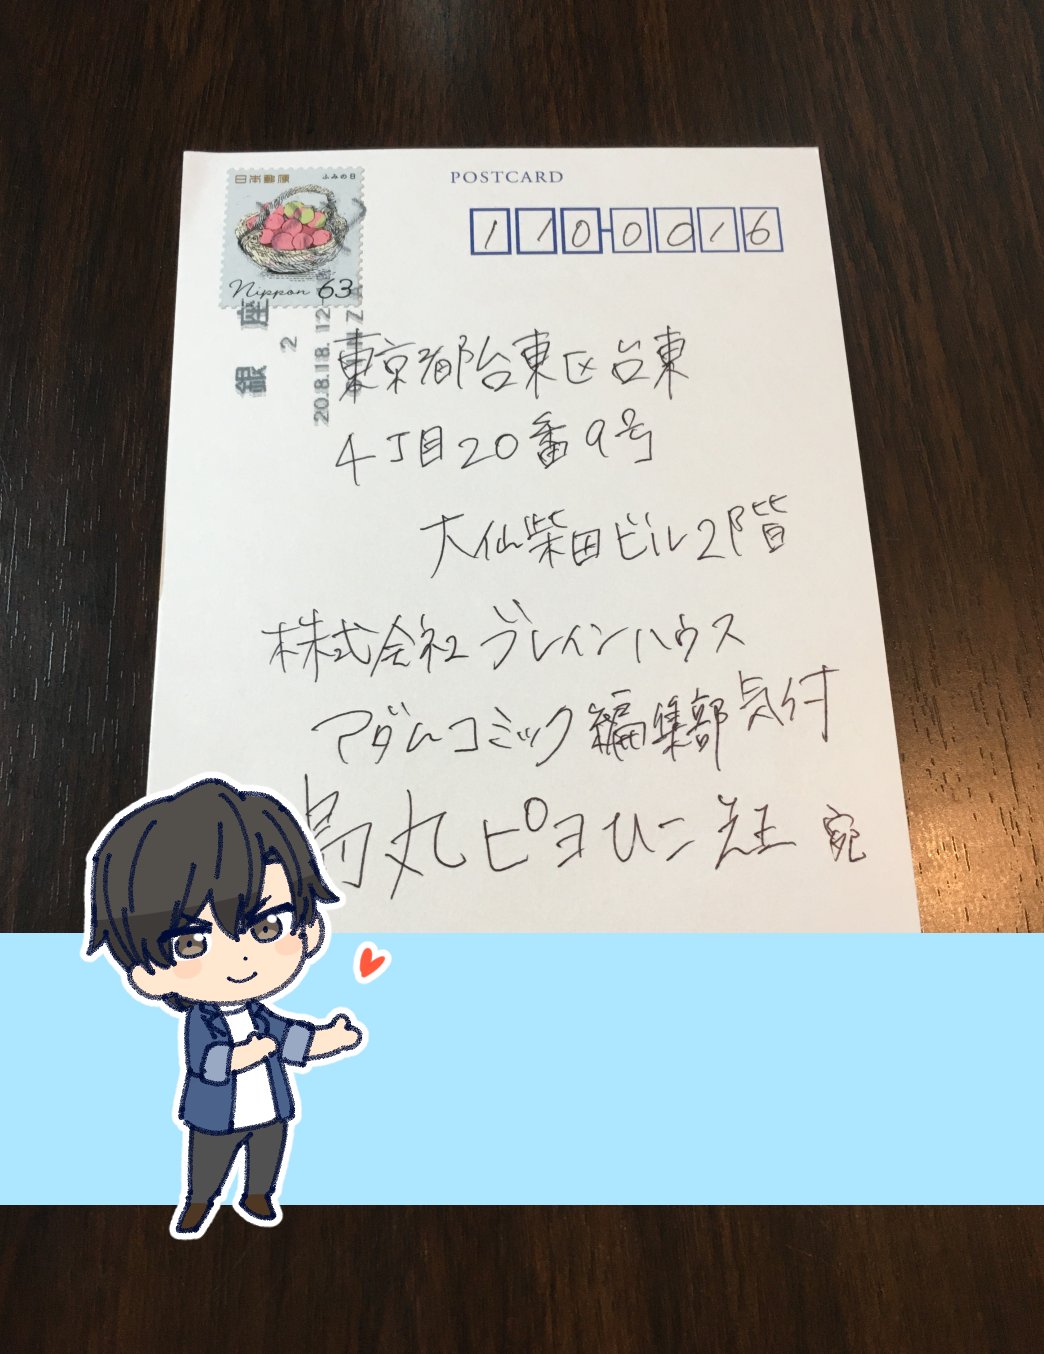 日本郵便 ふみの日
Nippon 63
銀座
2
20.8.18.12-
GINZA
POSTCARD
110-0016
東京都台東区台東
4丁目20番9号
大仙柴田ビル2階
株式会社ブレインハウス
アダムコミック編集部気付
烏丸ピヨひこ 宛